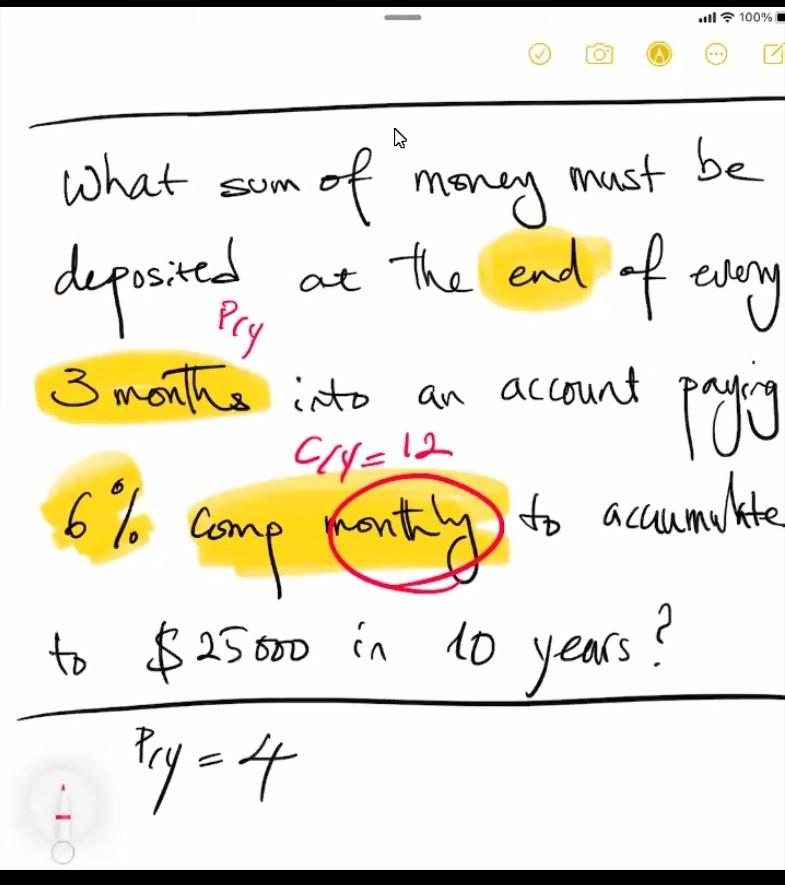 100%
What sum of money must be
deposited at the end of every
P/y
3 months into an account paying
C/Y = 12
6% comp monthly to accumulate
to $25000 in 10 years?
P/y = 4